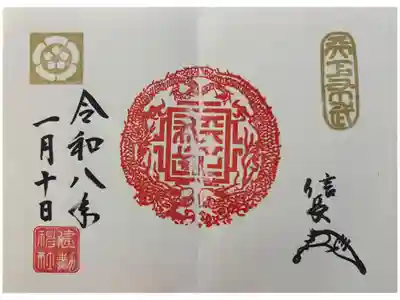 天下布武
信長
令和八年
一月十日
建勲
神社